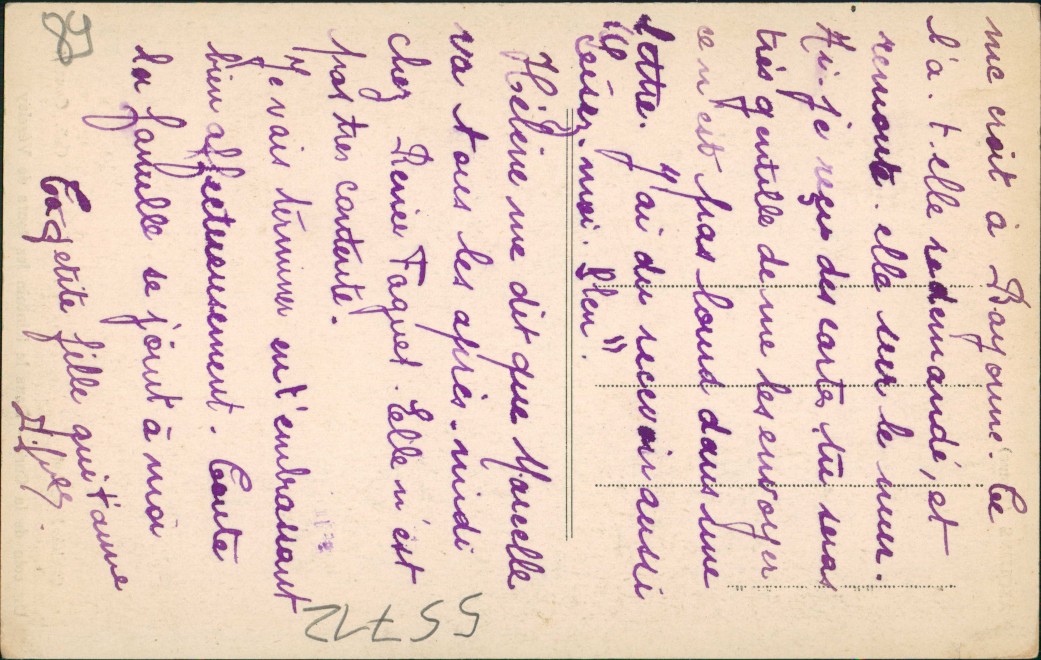 me croit à Bayonne. Ce
l'a. t. elle redemandé, et
remonte. elle sur le mur.
Hi. je reçu des cartes, tu seras
très gentille de me les envoyer
ce n'est pas lourd dans une
lettre. J'ai du recevoir aussi
moi. bleu.
Hélène me dit que Marcelle
va tous les après. midi
chez Renée Faguet. Elle n'est
pas très contente.
Je vais terminer en t'embrassant
bien affectueusement. Toute
la famille se joint à moi
Ta petite fille qui t'aime
55712